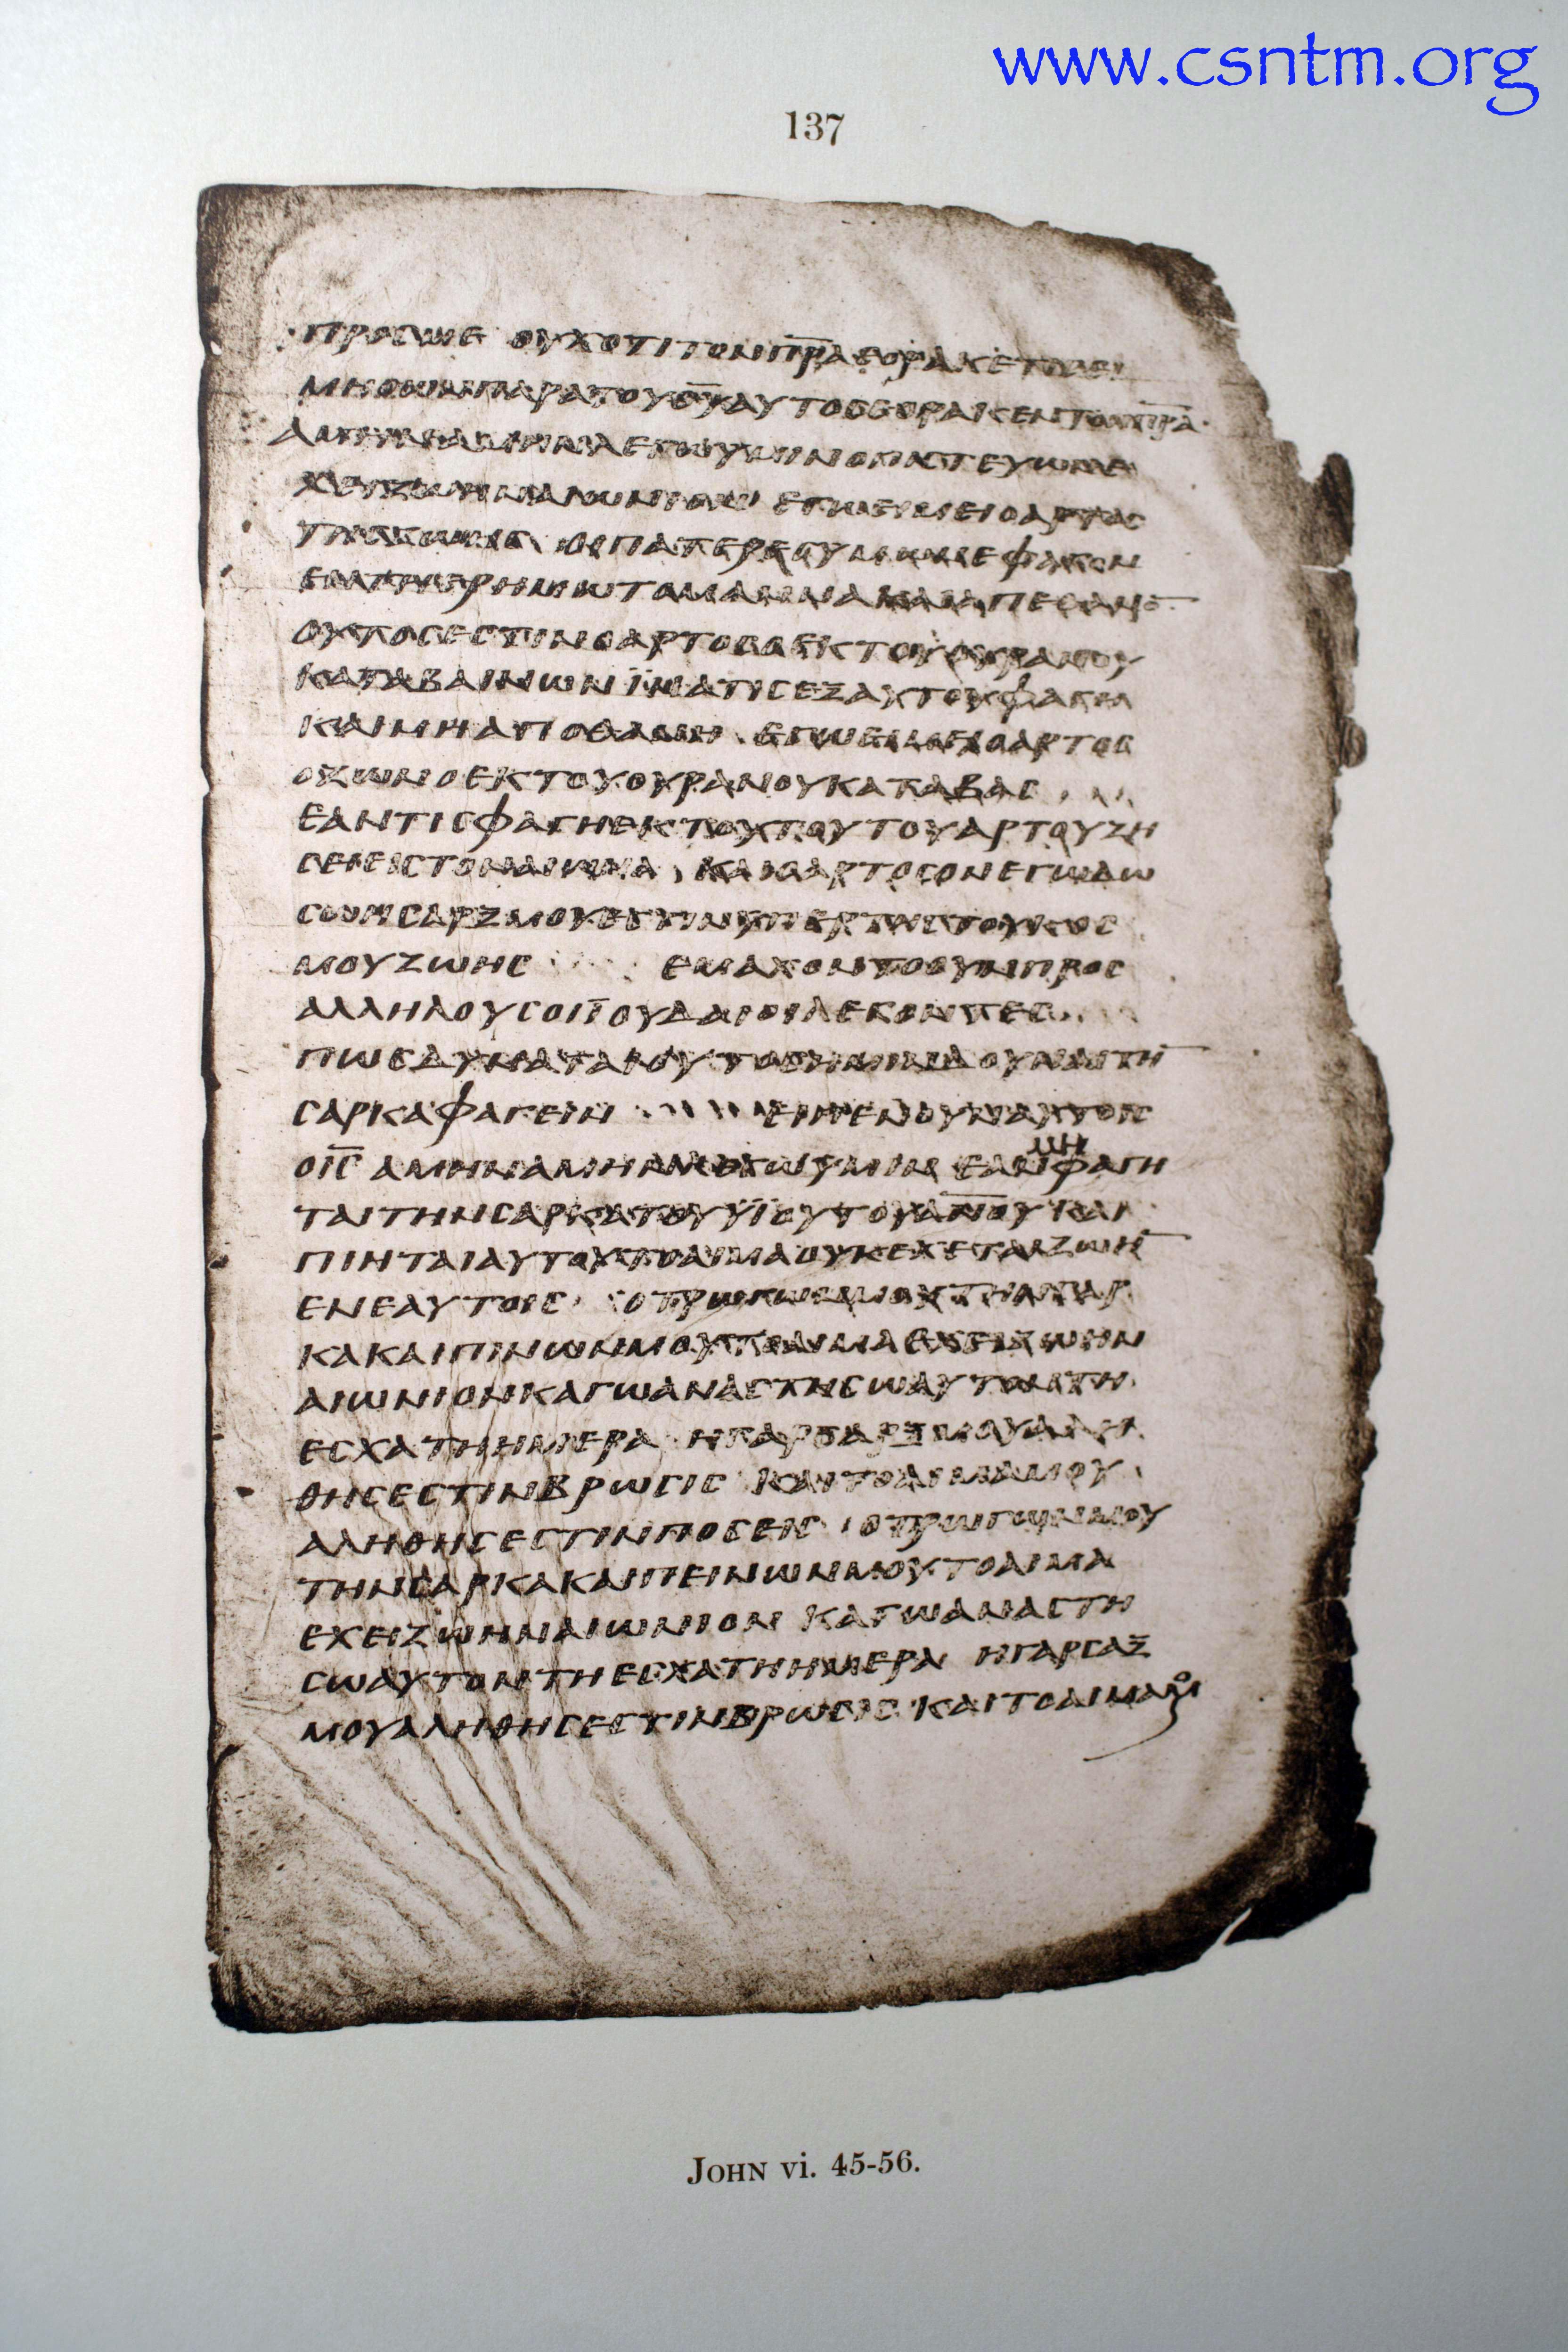 www.csntm.org
137
ΠΡΟΣΜΕ ΟΥΧΟΤΙΤΟΝΠΡΑ
ΠΑΡΑΤΟΥ ΕΝ
ΥΜΙΝΟΠΙϹΤΕΥΩΝ
ΕΓΩΕΙΜΕΙΟΑΡΤΟϹ
ΟΙΠΑΤΕΡΕϹΥΜΩΝΕΦΑΓΟΝ
ΤΟΜΑΝΝΑΚΑΙΑΠΕΘΑΝΟ̅
ΟΥΤΟϹΕϹΤΙΝΟΑΡΤΟϹΟΕΚΤΟΥΟΥΡΑΝΟΥ
ΚΑΤΑΒΑΙΝΩΝΪΝΑΤΙϹΕΞΑΥΤΟΥΦΑΓΗ
ΚΑΙΜΗΑΠΟΘΑΝΗ ΕΓΩΕΙΜΕΙΟΑΡΤΟϹ
ΟΖΩΝΟΕΚΤΟΥΟΥΡΑΝΟΥΚΑΤΑΒΑϹ
ΕΑΝΤΙϹΦΑΓΗΕΚΤΟΥΤΟΥΤΟΥΑΡΤΟΥΖΗ
ϹΕΙΕΙϹΤΟΝΑΙΩΝΑ ΚΑΙΟΑΡΤΟϹΟΝΕΓΩΔΩ
ϹΩΗϹΑΡΞΜΟΥΕϹΤΙΝΥΠΕΡΤΗϹΤΟΥΚΟϹ
ΜΟΥΖΩΗϹ ΕΜΑΧΟΝΤΟΟΥΝΠΡΟϹ
ΑΛΛΗΛΟΥϹΟΙΪΟΥΔΑΙΟΙΛΕΓΟΝΤΕϹ
ΠΩϹΔΥΝΑΤΑΙΟΥΤΟϹΗΜΙΝΔΟΥΝΑΙΤΗ̅
ϹΑΡΚΑΦΑΓΕΙΝ ΕΙΠΕΝΟΥΝΑΥΤΟΙϹ
ΟΙ̅Ϲ̅ ΑΜΗΝΑΜΗΝΛΕΓΩΥΜΙΝ ΕΑΝΜΗΦΑΓΗ
ΤΑΙΤΗΝϹΑΡΚΑΤΟΥΥΪΟΥΤΟΥΑ̅Ν̅Ο̅Υ̅ΚΑΙ
ΠΙΗΤΑΙΑΥΤΟΥΤΟΑΙΜΑΟΥΚΕΧΕΤΑΙΖΩΗ̅
ΕΝΕΑΥΤΟΙϹ ΟΤΡΩΓΩΝΜΟΥΤΗΝϹΑΡ
ΚΑΚΑΙΠΙΝΩΝΜΟΥΤΟΑΙΜΑΕΧΕΙΖΩΗΝ
ΑΙΩΝΙΟΝΚΑΓΩΑΝΑϹΤΗϹΩΑΥΤΟΝΤΗ
ΕϹΧΑΤΗΗΜΕΡΑ ΗΓΑΡϹΑΡΞΜΟΥΑΛΗ
ΘΗϹΕϹΤΙΝΒΡΩϹΙϹ ΚΑΙΤΟΑΙΜΑΜΟΥ
ΑΛΗΘΗϹΕϹΤΙΝΠΟϹΕΙϹ ΟΤΡΩΓΩΝΜΟΥ
ΤΗΝϹΑΡΚΑΚΑΙΠΕΙΝΩΝΜΟΥΤΟΑΙΜΑ
ΕΧΕΙΖΩΗΝΑΙΩΝΙΟΝ ΚΑΓΩΑΝΑϹΤΗ
ϹΩΑΥΤΟΝΤΗΕϹΧΑΤΗΗΜΕΡΑ ΗΓΑΡϹΑΞ
ΜΟΥΑΛΗΘΗϹΕϹΤΙΝΒΡΩϹΙϹ ΚΑΙΤΟΑΙΜΑ
JOHN vi. 45-56.